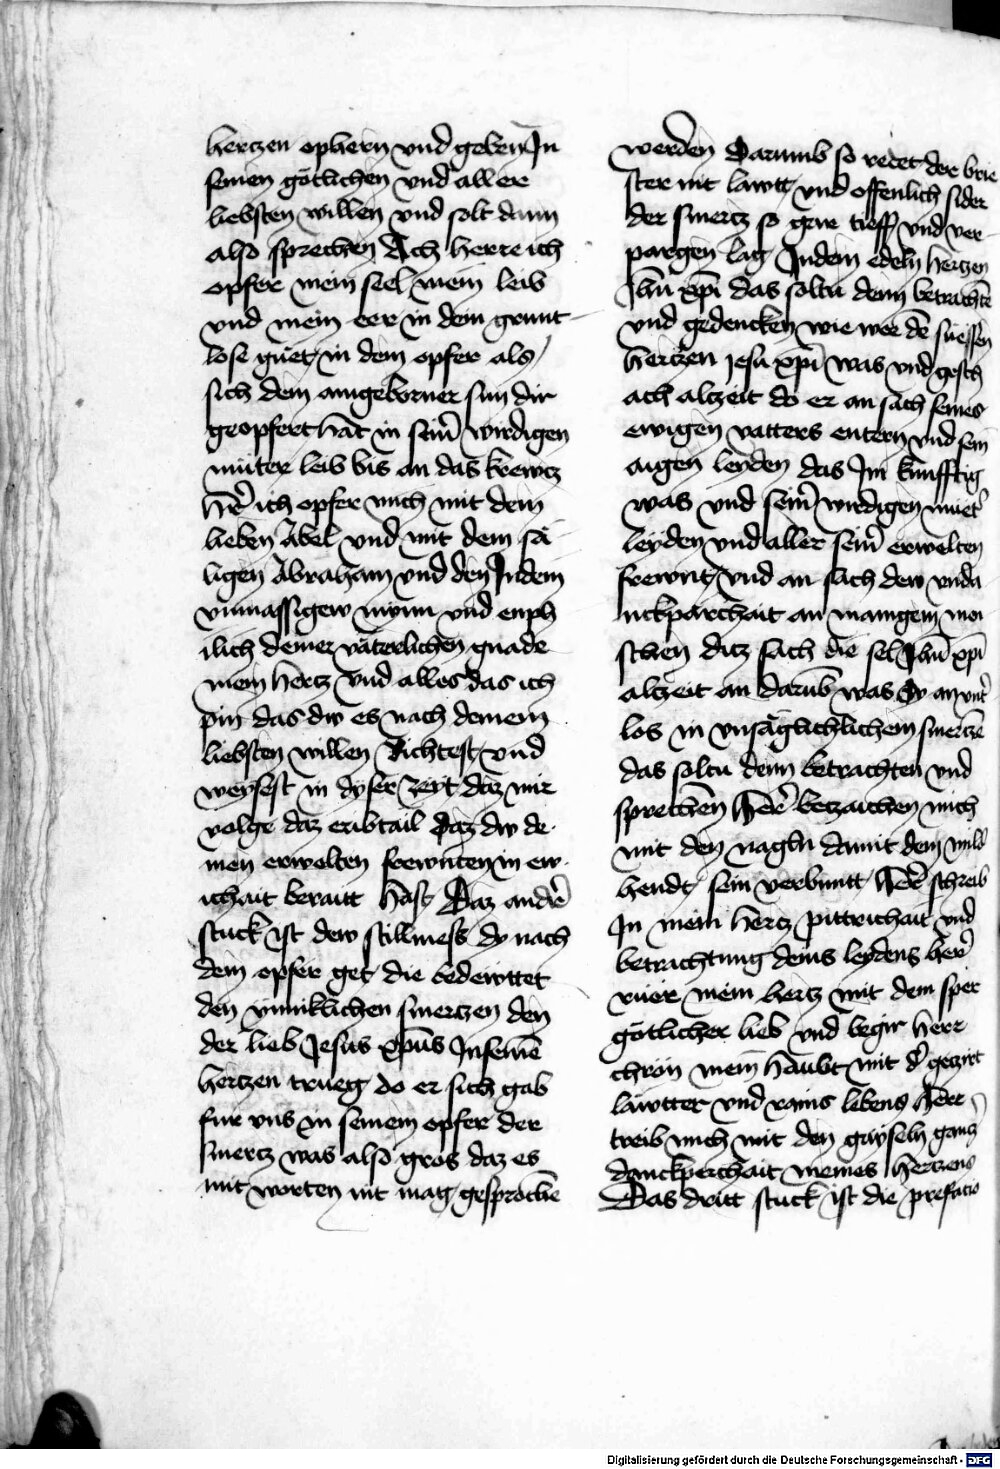 hertzen ophern vnd geben Jn
seinen götlichen vnd aller
liebsten willen vnd solt dann
also sprechen Ach herre ich
opfer mein seel mein leib
vnd mein eer in dem grunt
lose guet in dem opfer als
sich dein aingeborner sun dir
geopfert hat in seinr wirdigen
muter leib bis an das krewtz
herr ich opfer mich mit dem
lieben Abel vnd mit dem sä
ligen Abraham vnd den Jn dein
vnmassigew mynn vnd enph
ilich deiner väterlichen gnade
mein hertz vnd alles das ich
pin das dw es nach deinem
liebsten willen Richtest vnd
weysest in dyser zeyt daz mir
volge daz eribtail daz dw de
inen erwelten frewnten in ew
ichait berait hast Daz ander
stuck ist dew stillmess dy nach
dem opfer get die bedewttet
den ynniklichen smertzen den
der lieb Jesus xpus Jn seinē
hertzen trueg do er sich gab
fur vns in seinem opfer der
smertz was also gros daz es
mit worten nit mag gesprochē
werden Darumb so redet der brie
ster nit lawtt vnd offenlich sider
der smertz so gar tieff vnd ver
pargen lag Jn dem edeln hertzen
Jhu xpi das soltu denn betrachtē
vnd gedencken wie wee dē suessen
hertzen jesu xpi was vnd gesch
ach altzeit do er an sach seines
ewigen vatters enteren vnd sein
aigen leyden das Jm kunfftig
was vnd seinr wirdigen mueter
leyden vnd aller seinr erwelten
frewnt vnd an sach dew vnda
nckparchait an manigem men
schen ditz sach die sel Jhu xpi
altzeit an darub was Sy an vnt
los in vnsäglichlichem smertzē
das soltu denn betrachten vnd
sprechen Herr betzaichen mich
mit den nagln damit dein mild
hendt sein verbuntt herr schreib
Jn mein hertz pittrichait vnd
betrachtung deins leydens herr
ruer mein hertz mit dem sper
götlicher lieb vnd begir herr
chron mein haubt mit der getzirt
lawtter vnd rains lebens herr
treib mich mit den gayseln gantz
danckperchait meines hertzens
Das dritt stuck ist die prefatio
Digitalisierung gefördert durch die Deutsche Forschungsgemeinschaft - DFG